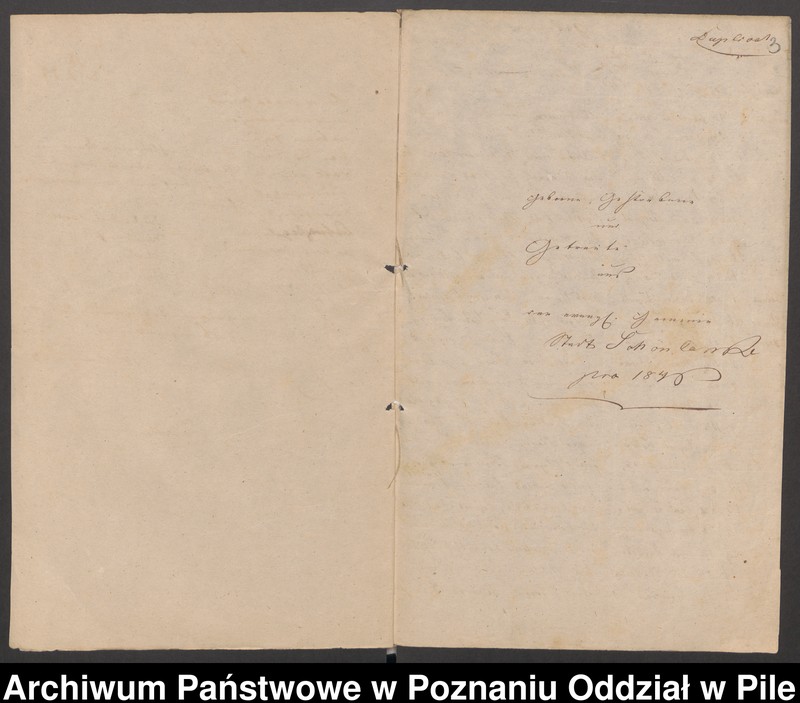 Duplicat
3
Geborne, Gestorbene
und
Getraute
aus
der evangl. Gemeinde
Stadt Schönlanke
pro
Archiwum Państwowe w Poznaniu Oddział w Pile